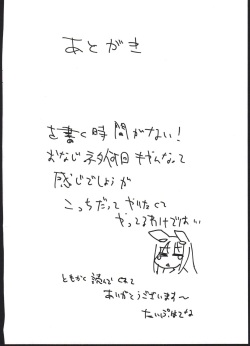 あとがき
を書く時間がない！
おなじネタ何回もやんなって
感じでしょうが
こっちだって やりたくて
やってるわけではない
ともかく 読んでくれて
ありがとうございます〜